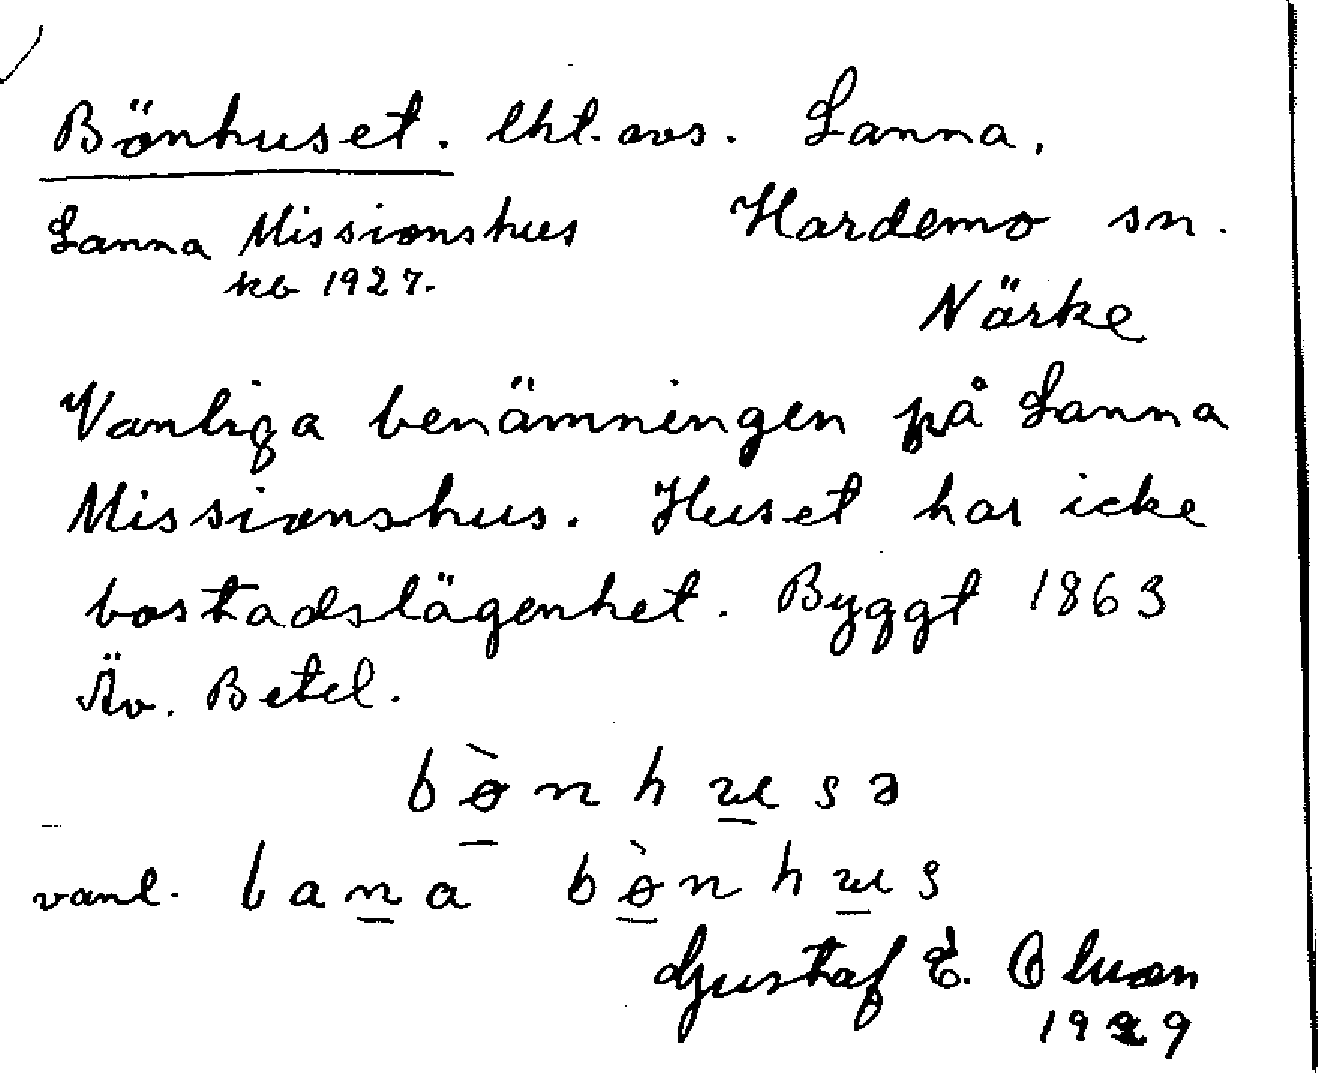 Bönhuset. lht. avs. Lanna.
Lanna Missionshus Hardemo sn.
kb 1927.
Närke
Vanliga benämningen på Lanna
Missionshus. Huset har icke
bostadslägenhet. Byggt 1863
Äv. Betel.
bø̲̀nhu̲sə
vanl. lan̲a bø̲̀nhu̲s
Gustaf E.
1929